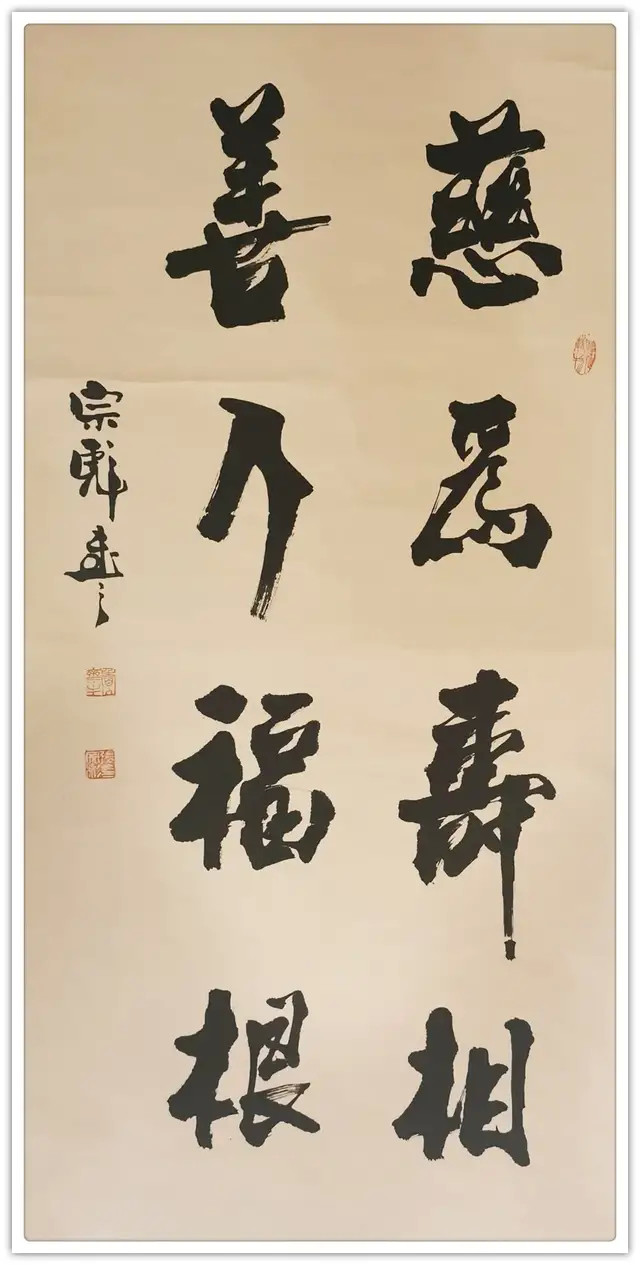 慈為壽相
善乃福根
宗彪書